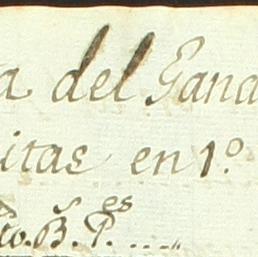 a del Gana
itas en 1.º
to. B.s P.es ....